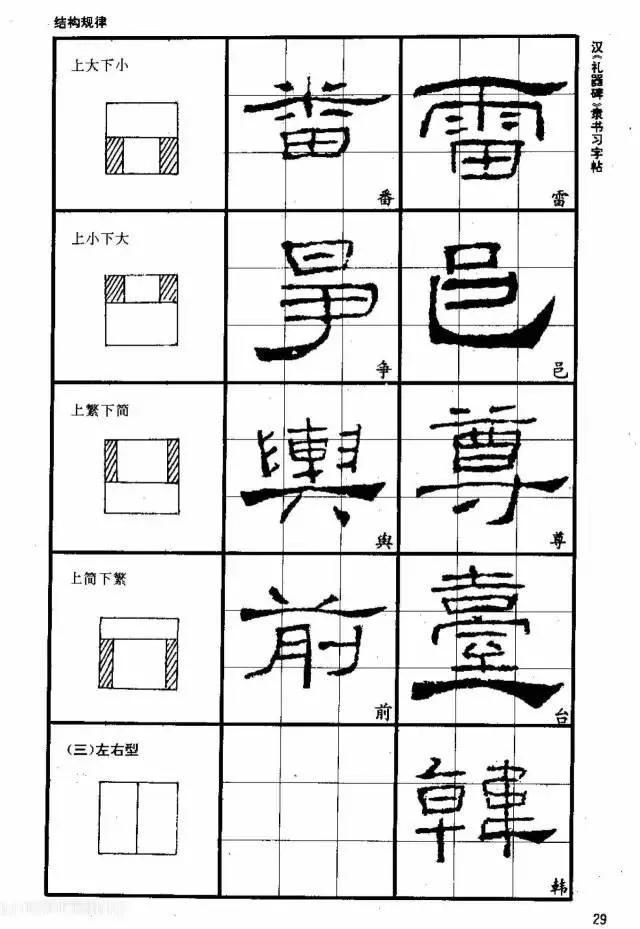 结构规律
汉《礼器碑》隶书习字帖
上大下小
番 雷
番 雷
上小下大
争 邑
争 邑
上繁下简
舆 尊
舆 尊
上简下繁
前 臺
前 台
(三)左右型
韓
韩
29